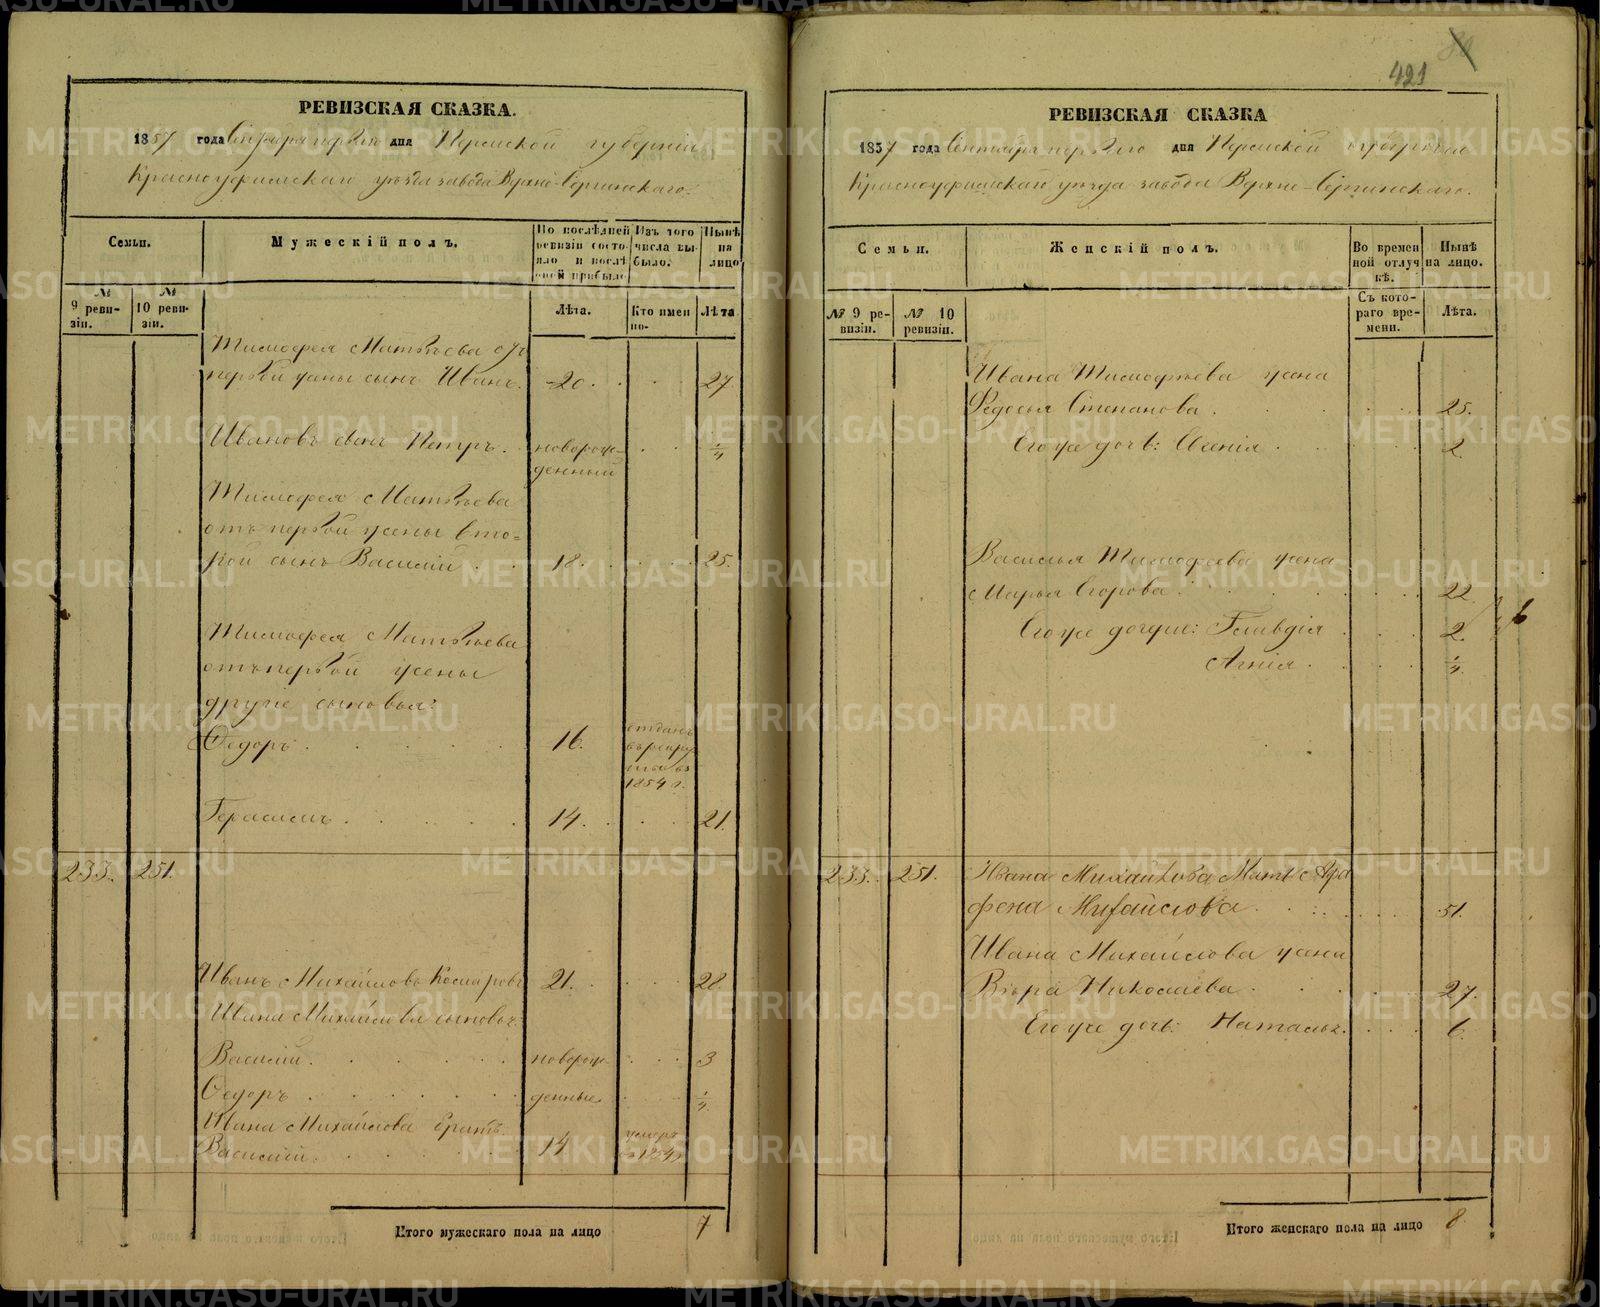 РЕВИЗСКАЯ СКАЗКА.
1857 года Сентября первого дня Пермской губерніи
Красноуфимскаго уѣзда завода Верхне-Сергинскаго.
Семьи.
Мужескій полъ.
По послѣдней ревизіи состояло и послѣ оной прибыло
Изъ того числа выбыло.
Нынѣ на лицо
№ 9 ревизіи.
№ 10 ревизіи.
Лѣта.
Кто именно.
Лѣта
Тимофея Матвѣева отъ
первой жены сынъ Иванъ. 20. 27
Ивановъ сынъ Петръ. новорож-
денный ¼
Тимофея Матвѣева
отъ первой жены вто-
рой сынъ Василій 18. 25.
Тимофея Матвѣева
отъ первой жены
другіе сыновья:
Ѳедоръ 16. отданъ
въ рекру
ты въ
1854 г.
Герасимъ 14. 21.
233. 251.
Иванъ Михайловъ Комаровъ 21. 28
Ивана Михайлова сыновья:
Василій новорож- 3
Ѳедоръ денные ¼
Ивана Михайлова братъ
Василій. 14 умеръ
в 1854 г.
Итого мужескаго пола на лицо 7
421
РЕВИЗСКАЯ СКАЗКА
1857 года Сентября первого дня Пермской губерніи
Красноуфимскаго уѣзда завода Верхне-Сергинскаго.
Семьи.
Женскій полъ.
Во временной отлучкѣ.
Нынѣ на лицо.
№ 9 ревизіи.
№ 10 ревизіи.
Съ котораго времени.
Лѣта.
Ивана Тимофѣева жена
Федосья Степанова. 25.
Его же дочь: Евгенія 2.
Василья Тимофеева жена
Марья Егорова 22.
Его же дочери: Клавдія 2.
Агнія. ¼
233. 251. Ивана Михайлова Мать Агра
фена Михайлова 51.
Ивана Михайлова жена
Вѣра Николаева 27.
Его же дочь: Наталья. 6.
Итого женскаго пола на лицо 8
METRIKI.GASO-URAL.RU